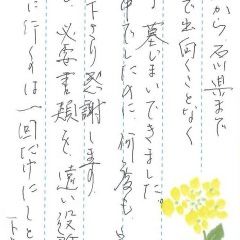 から石川県まで
で出向くことなく
墓じまいできました。
中でしたのに何度も
下さり感謝します
、必要書類を、遠い役所
に行くのは一回だけにしと